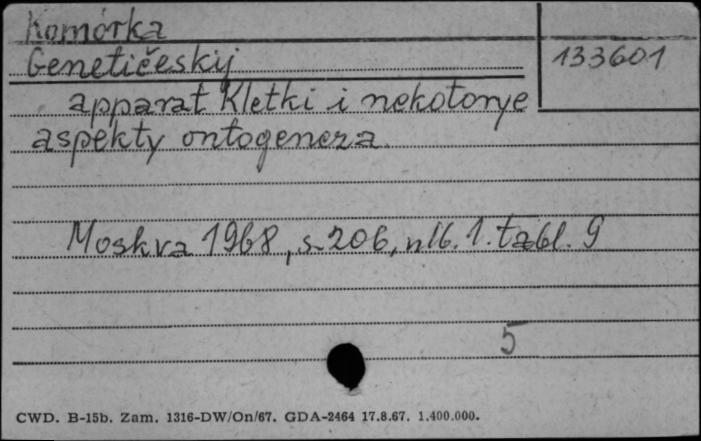 Komórka
Genetičeskij
133601
apparat kletki i nekotorye
aspekty ontogeneza.
Moskva 1968, s. 206, nlb. 1. tabl. 9
5
CWD. B-15b. Zam. 1316-DW/On/67. GDA-2464 17.8.67. 1.400.000.